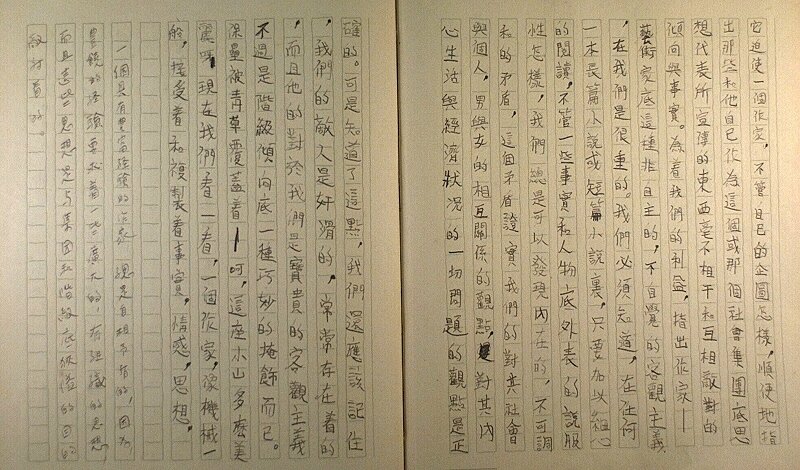 它迫使一個作家，不管自己的企圖怎樣，順便地指
出那些和他自己作為這個或那個社會集團底思
想代表所宣傳的東西毫不相干和互相敵對的
傾向與事實。為着我們的利益，指出作家—
藝術家底這種非自主的，不自覺的客觀主義
，在我們是很重的。我們必須知道，在任何
一本長篇小說或短篇小說裏，只要加以細心
的閱讀，不管一些事實和人物底外表的說服
性怎樣，我們總是可以發現內在的，不可調
和的矛盾，這個矛盾證實：我們的對共社會
與個人，男與女的相互關係的觀點，對其內
心生活與經濟狀況的一切問題的觀點是正
確的。可是知道了這點，我們還應該記住
，我們的敵人是奸滑的，常常存在着的
，而且他的對於我們是寶貴的客觀主義
不過是階級傾向底一種巧妙的掩飾而已。
深量被青草覆蓋着—呵，這座小山多麼美
麗呀！現在我們看一看，一個作家，像機械一
般，接受着和複製着事實，情感，思想。
一個具有豐富經驗的作家，總是自相矛盾的，因為
豐饒的經驗要求着一些廣大的，有組織的思想
而且這些思想是與集團和階級底狹隘的目的
敵對着的。